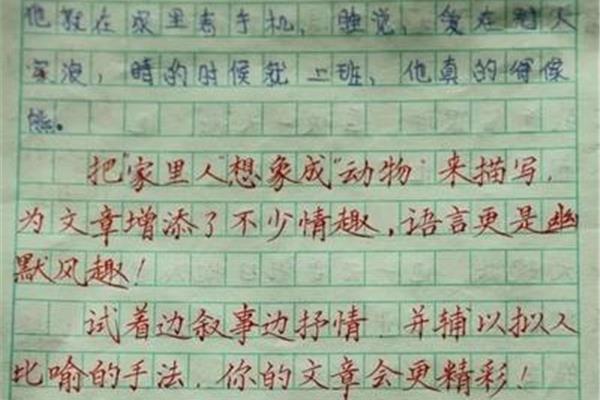 他就在家里看手机，睡觉，爱在刮大
寒浪，晴的时候就上班，他真的何像
熊。
把"家里人"想象成"动物"来描写，
为文章增添了不少情趣，语言更是幽
默风趣！
试着边叙事边抒情，并辅以拟人
比喻的手法，你的文章会更精彩！